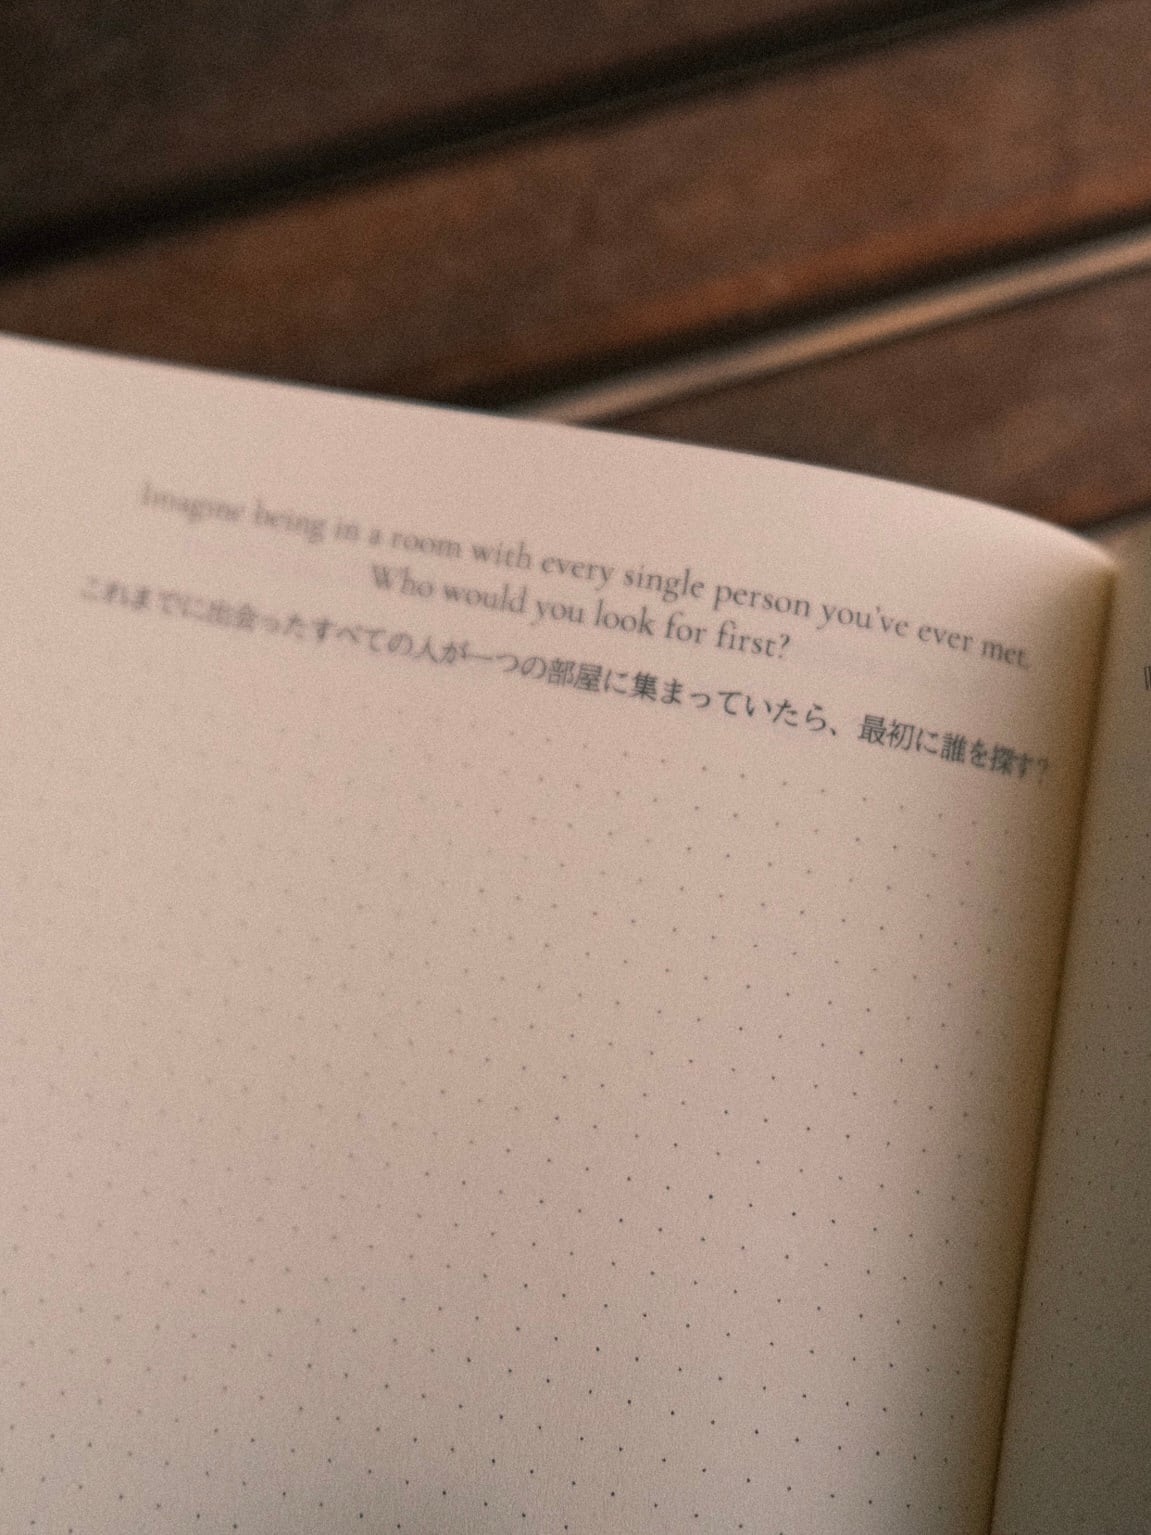 Imagine being in a room with every single person you've ever met.
Who would you look for first?
これまでに出会ったすべての人が一つの部屋に集まっていたら、最初に誰を探す?